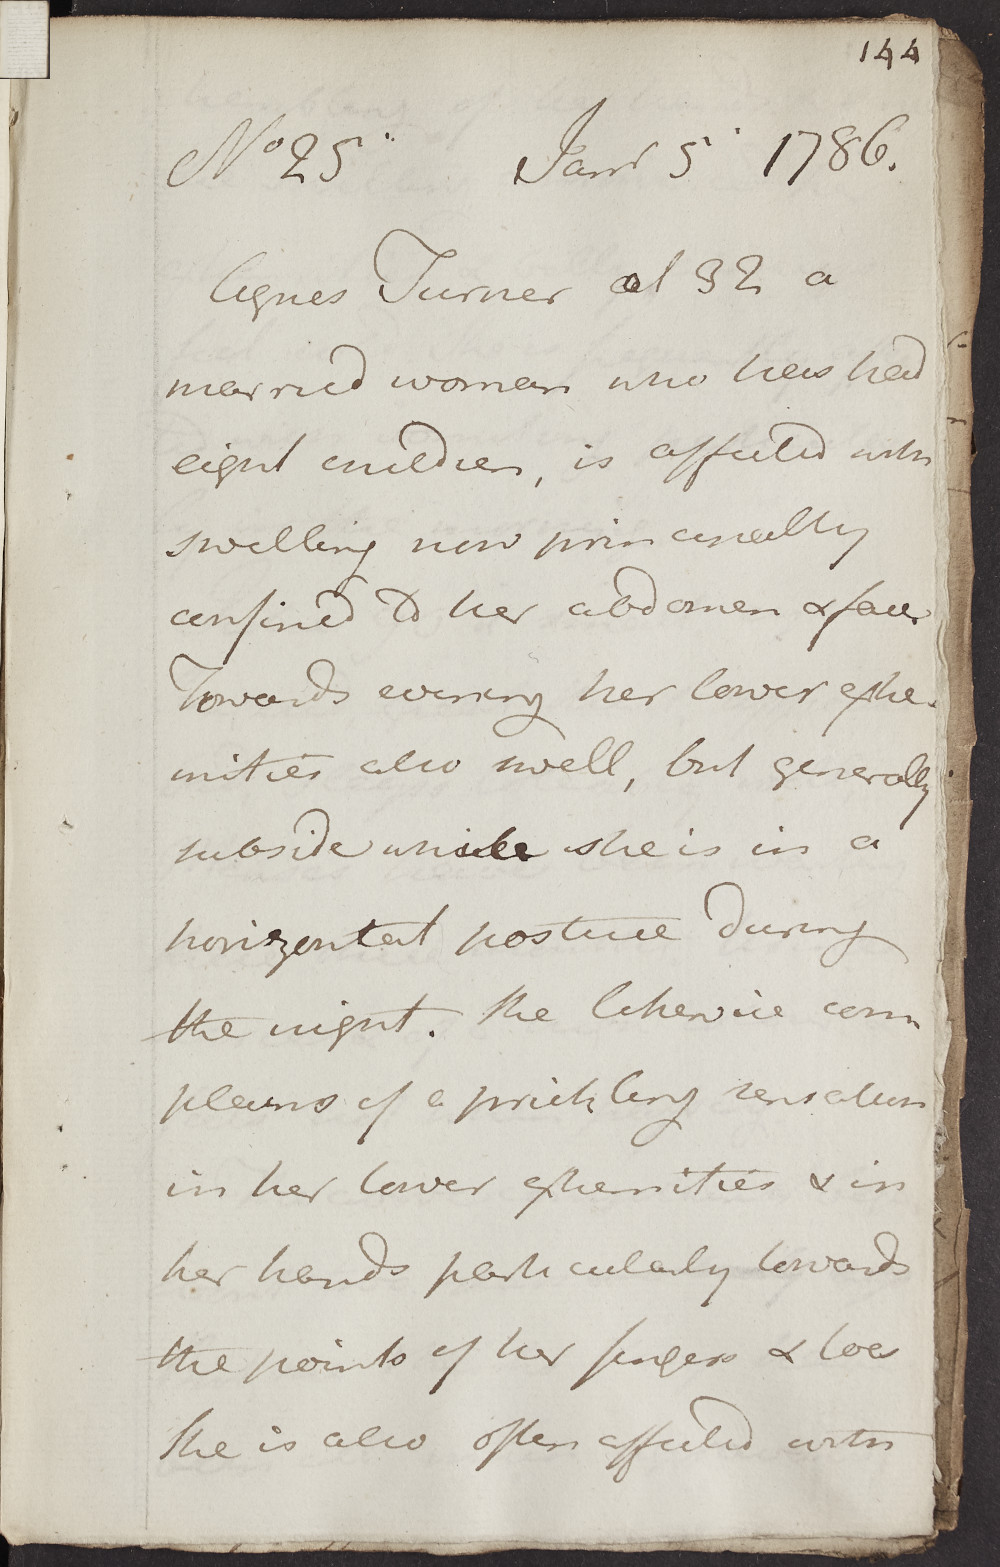 144
No 25 Janr 5 1786.
Agnes Turner æt 32 a
married woman who has had
eight children, is affected with
swelling now principally
confined to her abdomen & face
Towards evening her lower extre-
mities also swell, but generally
subside while she is in a
horizontal posture during
the night. She likewise com
plains of a prickling sensation
in her lower extremities & in
her hands particularly towards
the points of her fingers & toes
She is also often affected with